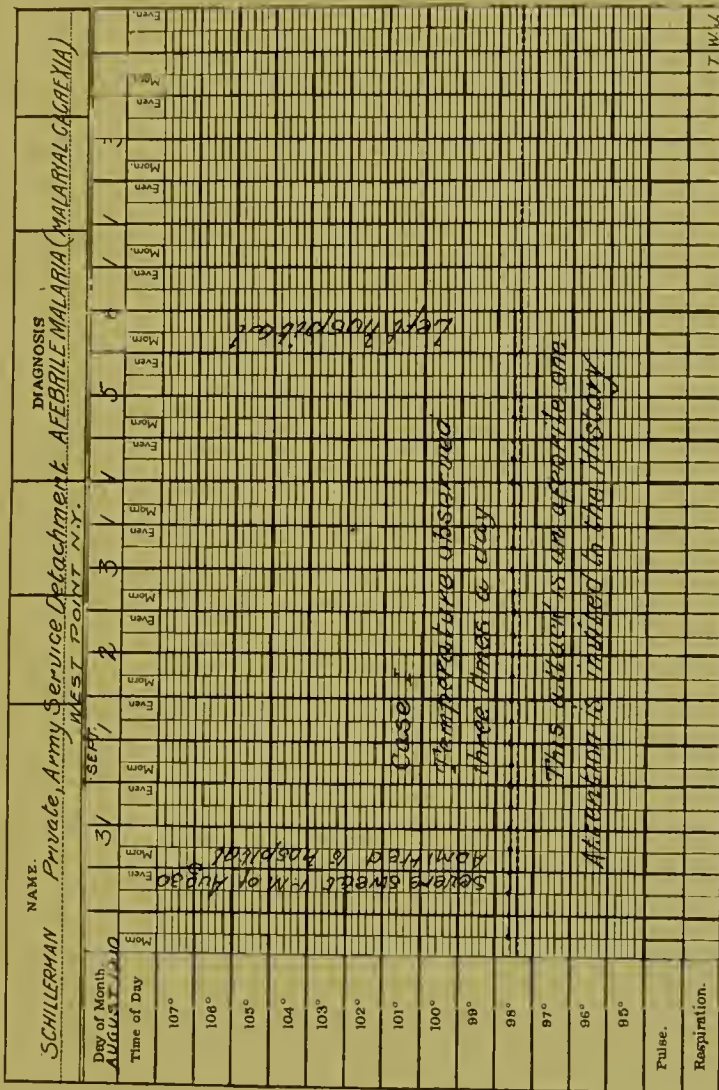 NAME.
DIAGNOSIS
SCHILLERMAN Private, Army Service Detachment AFEBRILE MALARIA (MALARIAL CACHEXIA)
WEST POINT N.Y.
Day of Month
AUGUST
31
SEPT.
1
2
3
5
Time of Day
Morn
Even
Morn
Even
Morn
Even
Morn
Even
Morn
Even
Morn
Even
Morn
Even
Morn.
Even
Morn.
Even
Morn.
Even
Morn.
Even.
107°
106°
105°
104°
103°
102°
101°
100°
99°
98°
97°
96°
95°
Pulse.
Respiration.
Severe sweat P.M of Aug 30
Admitted to hospital
Left hospital
Case I
Temperature observed
three times a day
This attack is an afebrile one
Attention is invited to the History